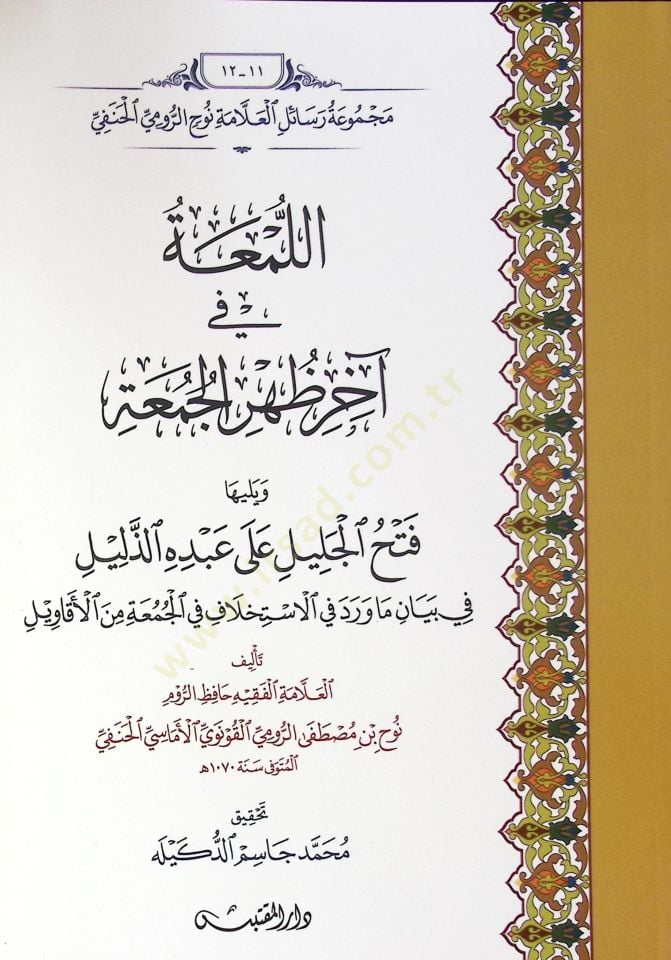 ١١-١٢
مَجْمُوعَةُ رَسَائِلِ ٱلْعَلَّامَةِ نُوحٍ الرُّومِيِّ ٱلْحَنَفِيِّ
اللُّمْعَةُ
فِي
آخِرِ ظُهْرِ الجُمُعَةِ
وَيَلِيهَا
فَتْحُ ٱلْجَلِيلِ عَلَى عَبْدِهِ ٱلذَّلِيْلِ
فِي بَيَانِ مَا وَرَدَ فِي ٱلْاسْتِخْلَافِ فِي ٱلْجُمُعَةِ مِنَ ٱلْأَقَاوِيْلِ
تَأْلِيفُ
ٱلْعَلَّامَةِ ٱلْفَقِيْهِ حَافِظِ الرُّوْمِ
نُوْحِ بْنِ مُصْطَفَى الرُّومِيِّ ٱلْقُوْنَوِيِّ ٱلْأَمَاسِيِّ ٱلْحَنَفِيِّ
ٱلْمُتَوَفَّى سَنَة ١٠٧٠هـ
تَحْقِيق
مُحَمَّد جَاسِمْ ٱلدُّكَيْلَه
دار المقتبس
www.ihsad.com.tr